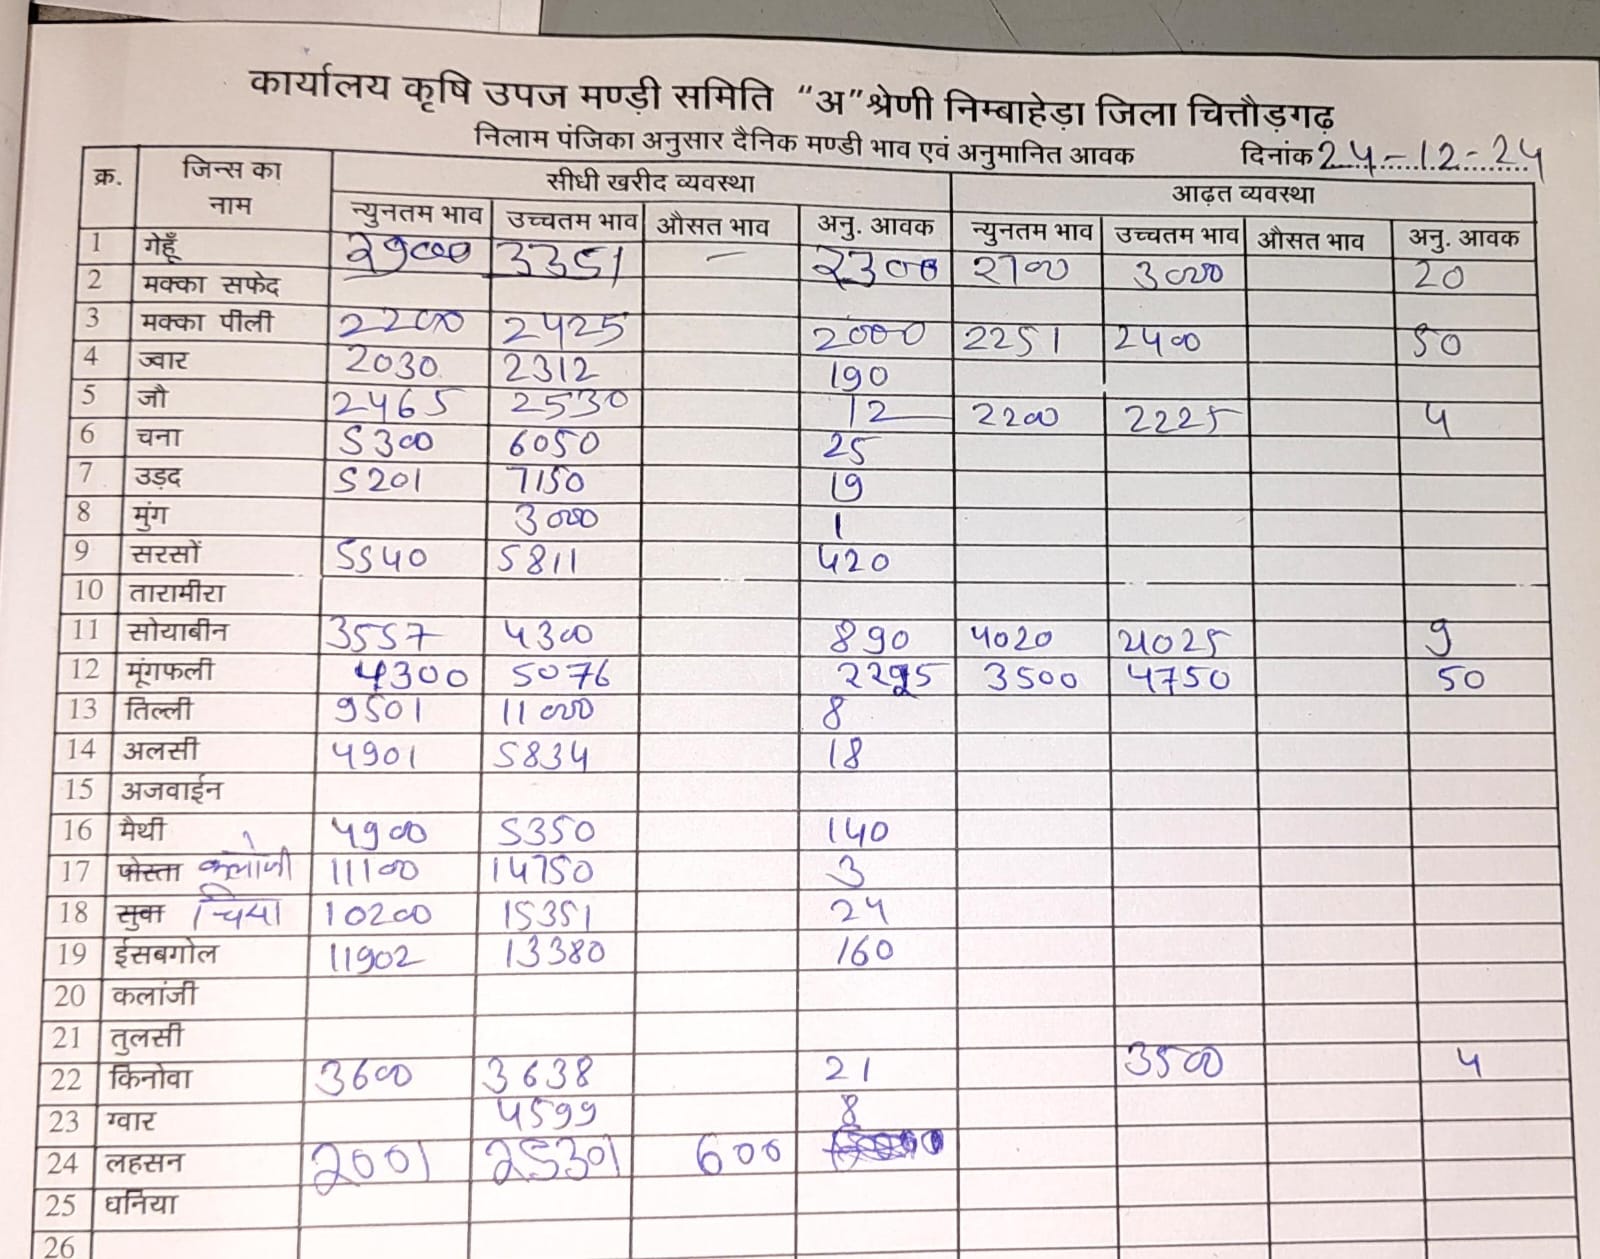 कार्यालय कृषि उपज मण्ड़ी समिति "अ" श्रेणी निम्बाहेड़ा जिला चित्तौड़गढ़
निलाम पंजिका अनुसार दैनिक मण्डी भाव एवं अनुमानित आवक दिनांक 24-12-24
क्र. जिन्स का नाम सीधी खरीद व्यवस्था आढ़त व्यवस्था
न्युनतम भाव उच्चतम भाव औसत भाव अनु. आवक न्युनतम भाव उच्चतम भाव औसत भाव अनु. आवक
1 गेहूँ 3351 — 2300 2700 3000 20
2 मक्का सफेद
3 मक्का पीली 2200 2425 2000 2251 2400 50
4 ज्वार 2030 2312 190
5 जौ 2465 2530 12 2200 2225 4
6 चना 5300 6050 25
7 उड़द 5201 7150 19
8 मुंग 3000 1
9 सरसों 5540 5811 420
10 तारामीरा
11 सोयाबीन 3557 4300 890 4020 4025 9
12 मूंगफली 4300 5076 3500 4750 50
13 तिल्ली 9501 11000 8
14 अलसी 4901 5834 18
15 अजवाईन
16 मैथी 4900 5350 140
17 पोस्ता कलोंजी 11100 14750 3
18 सुवा चिया 10200 15351 24
19 ईसबगोल 11902 13380 160
20 कलांजी
21 तुलसी
22 किनोवा 3600 3638 21 3500 4
23 ग्वार 4599 8
24 लहसन 2001 25301 600
25 धनिया
26